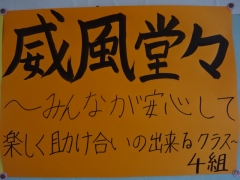 威風堂々
〜みんなが安心して
楽しく助け合いの出来るクラス〜
4組